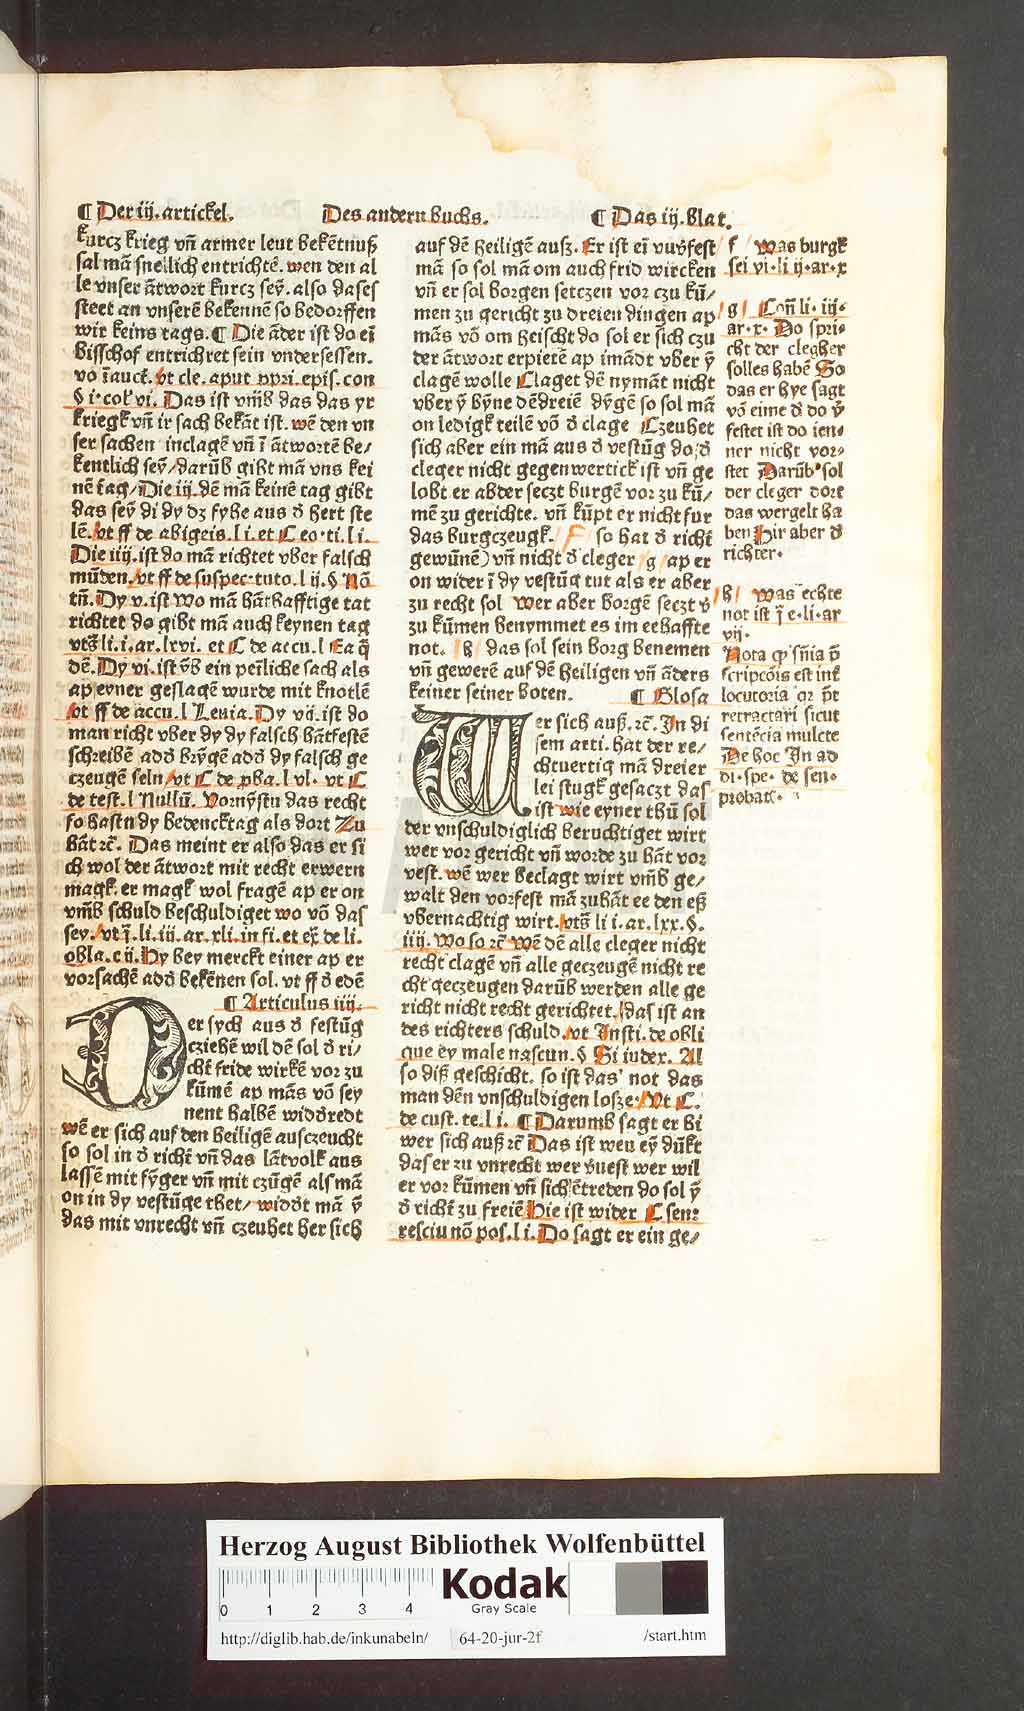 ¶ Der iij. artickel. Des andern buchs. ¶ Das iij. blat.
kurcz krieg vñ armer leut bekẽtnuß
sal mã snellich entrichtẽ. wen den al
le vnser ãtwort kurcz seÿ. also dases
steet an vnserẽ bekennẽ so bedorffen
wir keins tags. ¶ Die ãder ist do eĩ
bisschof entrichret sein vndersessen.
vo ĩ auct. vt cle. aput ppri. epis. con
§ i. col' vi. Das ist vm̃b das das yr
kriegk vñ ir sach bekãt ist. wẽ den vn
ser sachen inclagẽ vñ ĩ ãtwortẽ be/
kentlich seÿ/ darũb gibt mã vns kei
nẽ tag/ Die iij. dẽ mã keinẽ tag gibt
das seÿ di dy dz fyhe aus ð hert ste
lẽ. vt ff de abigeis. l i. et C eo. ti. l i.
Die iiij. ist do mã richtet vber falsch
mũden. vt ff de suspec. tuto. l ij. § Nã
tñ. Dy v. ist wo mã hãthafftige tat
richtet do gibt mã auch keynen tag
vtꝭ li. i. ar. lxvi. et C de accu. l Ea q̃
dẽ. Dy vi. ist v̄b ein peĩliche sach als
ap eyner geslagẽ wurde mit knotlẽ
vt ff de accu. l Leuia. Dy vij. ist do
man richt vber dy dy falsch hãtfestẽ
schreibẽ adð brÿgẽ adð dy falsch ge
czeugẽ seln/ vt C de ꝓba. l vl. vt C
de test. l Nullũ. Vornÿstu das recht
so hastu dy bedencktag als dort Zu
hãt ⁊c̃. Das meint er also das er si
ch wol der ãtwort mit recht erwern
magk. er magk wol fragẽ ap er on
vm̃b schuld beschuldiget wo võ das
sey. vt j̃. li. iij. ar. xli. in fi. et ex̃ de li.
obla. c ij. Hy bey merckt einer ap er
vorsachẽ adð bekẽnen sol. vt ff ð edẽ
¶ Articulus iiij.
Der sych aus ð festũg
cziehẽ wil dẽ sol ð ri/
cht̃ fride wirkẽ vor zu
kũmẽ ap mãs võ sey
nent halbẽ widðredt
wẽ er sich auf den heiligẽ aufczeucht
so sol in ð richt̃ vñ das lãtvolk aus
lassẽ mit fÿger vñ mit czũgẽ als mã
on in dy vestũge thet/ widðt mã ÿ
das mit vnrecht vñ czeuhet her sich
auf dẽ heiligẽ ausz. Er ist eĩ vuṽfest
mã so sol mã om auch frid wircken
vñ er sol borgen setczen vor czu kũ/
men zu gericht zu dreien dingen ap
mãs võ om heischt do sol er sich czu
der ãtwort erpietẽ ap imãdt vber ÿ
clagẽ wolle Claget dẽ nymãt nicht
vber ÿ bÿne dẽ dreiẽ dÿgẽ so sol mã
on ledigk teilẽ võ ð clage Czeuhet
sich aber ein mã aus ð vestũg do/ ð
cleger nicht gegenwertick ist vñ ge
lobt er abder seczt burgẽ vor zu kũ/
mẽ zu gerichte. vñ kũpt er nicht fur
das burgczeugk. f so hat ð richt̃
gewũnẽ) vñ nicht ð cleger g ap er
on wider ĩ dy vestũg tut als er aber
zu recht sol Wer aber borgẽ seczt v̄
zu kũmen benymmet es im eehaffte
not. h das sol sein borg benemen
vñ gewerẽ auf dẽ heiligen vñ ãders
keiner seiner boten. ¶ Glosa
Wer sich auß. ⁊c̃. In di
sem arti. hat der re/
chtuertig mã dreier
lei stugk gesaczt das
ist wie eyner thũ sol
der vnschuldiglich beruchtiget wirt
wer vor gericht vñ worde zu hãt vor
vest. wẽ wer beclagt wirt vm̃b ge/
walt den vorfest mã zuhãt ee den eß
vbernachtig wirt. vtꝭ li i. ar. lxx. §.
iiij. Wo so ⁊c̃ Wẽ dẽ alle cleger nicht
recht clagẽ vñ alle geczeugẽ nicht re
cht geczeugen darũb werden alle ge
richt nicht recht gerichtet. das ist an
des richters schuld. vt Insti. de obli
que ey male nascun. § Si iudex. Al
so diß geschicht. so ist das not das
man dẽn vnschuldigen losze: Vt C.
de cust. re. l i. ¶ Darumb sagt er bi
wer sich auß ⁊c̃ Das ist weu eÿ dũkt
das er zu vnrecht wer ṽuest wer wil
er vor kũmen vñ sich ẽtreden do sol ÿ
ð richt̃ zu freiẽ Hie ist wider C sen:
resciu nõ pos. l i. Do sagt er ein ge/
f Was burgk
sei vi. li ij. ar. x
g Coñ li. iij.
ar. x. Do spri.
cht der clegher
solles habẽ So
das er hye sagt
võ eime ð do ṽ
festet ist do ien.
ner nicht vor.
stet Darũb sol
der cleger dort
das wergelt ha
ben Hir aber ð
richter.
h Was echte
not ist j̃ e. li. ar
vij.
Nota ꝙ sñia p̃
scripcõis est int̃
locutoria qr p̃t
retractari sicut
sentẽcia mulcte
De hoc In ad
di. spe. de sen.
probatẽ.
Herzog August Bibliothek Wolfenbüttel
0 1 2 3 4
Kodak
Gray Scale
http://diglib.hab.de/inkunabeln/ 64-20-jur-2f /start.htm